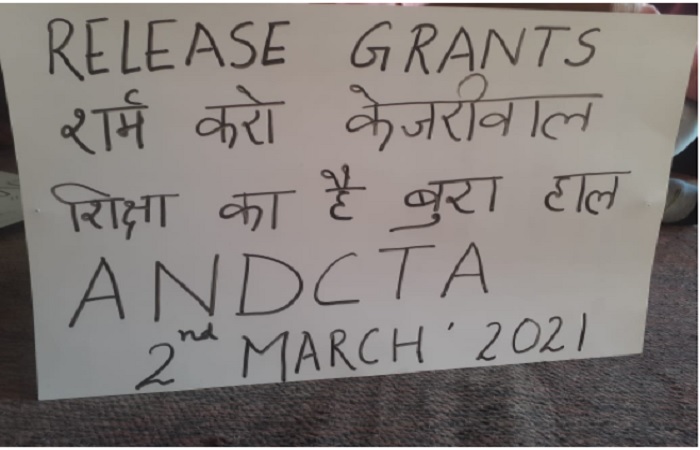 RELEASE GRANTS
शर्म करो केजरीवाल
शिक्षा का है बुरा हाल
ANDCTA
2nd MARCH' 2021